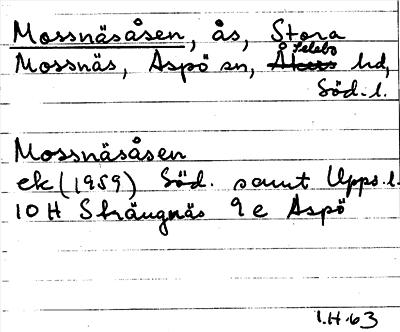 Mossnäsåsen, ås, Stora
Selebo
Mossnäs, Aspö sn, Åkers hd,
Söd. l.
Mossnäsåsen
ek (1959) Söd. samt Upps. l.
10 H Strängnäs 9 e Aspö
1.H.63